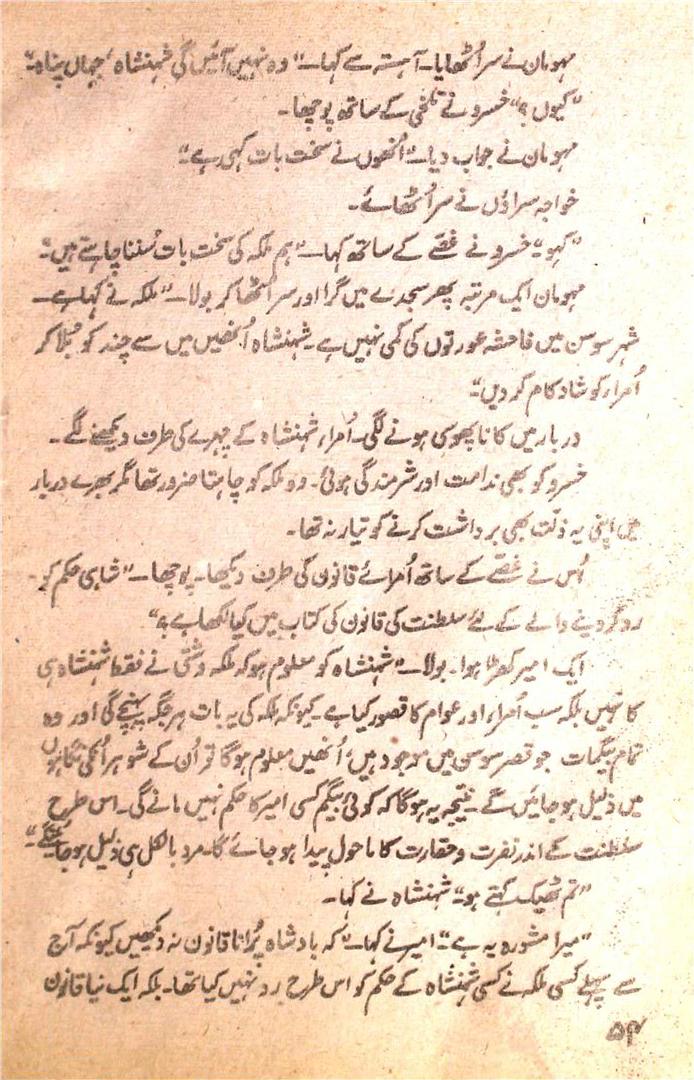 مہومان نے سر اُٹھایا۔ آہستہ سے کہا۔ "وہ نہیں آئیں گی شہنشاہ، جہاں پناہ"
"کیوں؟" خسرو نے تلخی کے ساتھ پوچھا۔
مہومان نے جواب دیا۔ "اُنھوں نے سخت بات کہی ہے"
خواجہ سراؤں نے سر اُٹھائے۔
"کہو" خسرو نے غصّے کے ساتھ کہا۔ "ہم ملکہ کی سخت بات سُننا چاہتے ہیں"
مہومان ایک مرتبہ پھر سجدے میں گرا اور سر اُٹھا کر بولا۔ "ملکہ نے کہا ہے۔
شہر سوسن میں فاحشہ عورتوں کی کمی نہیں ہے۔ شہنشاہ اُنھیں میں سے چند کو بُلا کر
اُمراء کو شاد کام کر دیں"
دربار میں کانا پھوسی ہونے لگی۔ اُمراء شہنشاہ کے چہرے کی طرف دیکھنے لگے۔
خسرو کو بھی ندامت اور شرمندگی ہوئی۔ وہ ملکہ کو چاہتا ضرور تھا مگر بھرے دربار
میں اپنی یہ ذلّت بھی برداشت کرنے کو تیار نہ تھا۔
اُس نے غصّے کے ساتھ اُمرائے قانون کی طرف دیکھا۔ پوچھا۔ "شاہی حکم کو۔
رد کر دینے والے کے لئے سلطنت کی قانون کی کتاب میں کیا لکھا ہے؟"
ایک امیر کھڑا ہوا۔ بولا۔ "شہنشاہ کو معلوم ہو کہ ملکہ وشتی نے فقط شہنشاہ ہی
کا نہیں بلکہ سب اُمراء اور عوام کا قصور کیا ہے۔ کیونکہ ملکہ کی یہ بات ہر جگہ پہنچے گی اور وہ
تمام بیگمات جو قصر سوسن میں موجود ہیں، اُنھیں معلوم ہوگا تو اُن کے شوہر اُنکی نگاہوں
میں ذلیل ہو جائیں گے۔ نتیجہ یہ ہوگا کہ کوئی بیگم کسی امیر کا حکم نہیں مانے گی۔ اس طرح
سلطنت کے اندر نفرت و حقارت کا ماحول پیدا ہو جائے گا۔ مرد بالکل ہی ذلیل ہو جائیں گے"
"تم ٹھیک کہتے ہو" شہنشاہ نے کہا۔
"میرا مشورہ یہ ہے" امیر نے کہا۔ "کہ بادشاہ پُرانا قانون نہ دیکھیں کیونکہ آج
سے پہلے کسی ملکہ نے کسی شہنشاہ کے حکم کو اس طرح رد نہیں کیا تھا۔ بلکہ ایک نیا قانون
۵۴